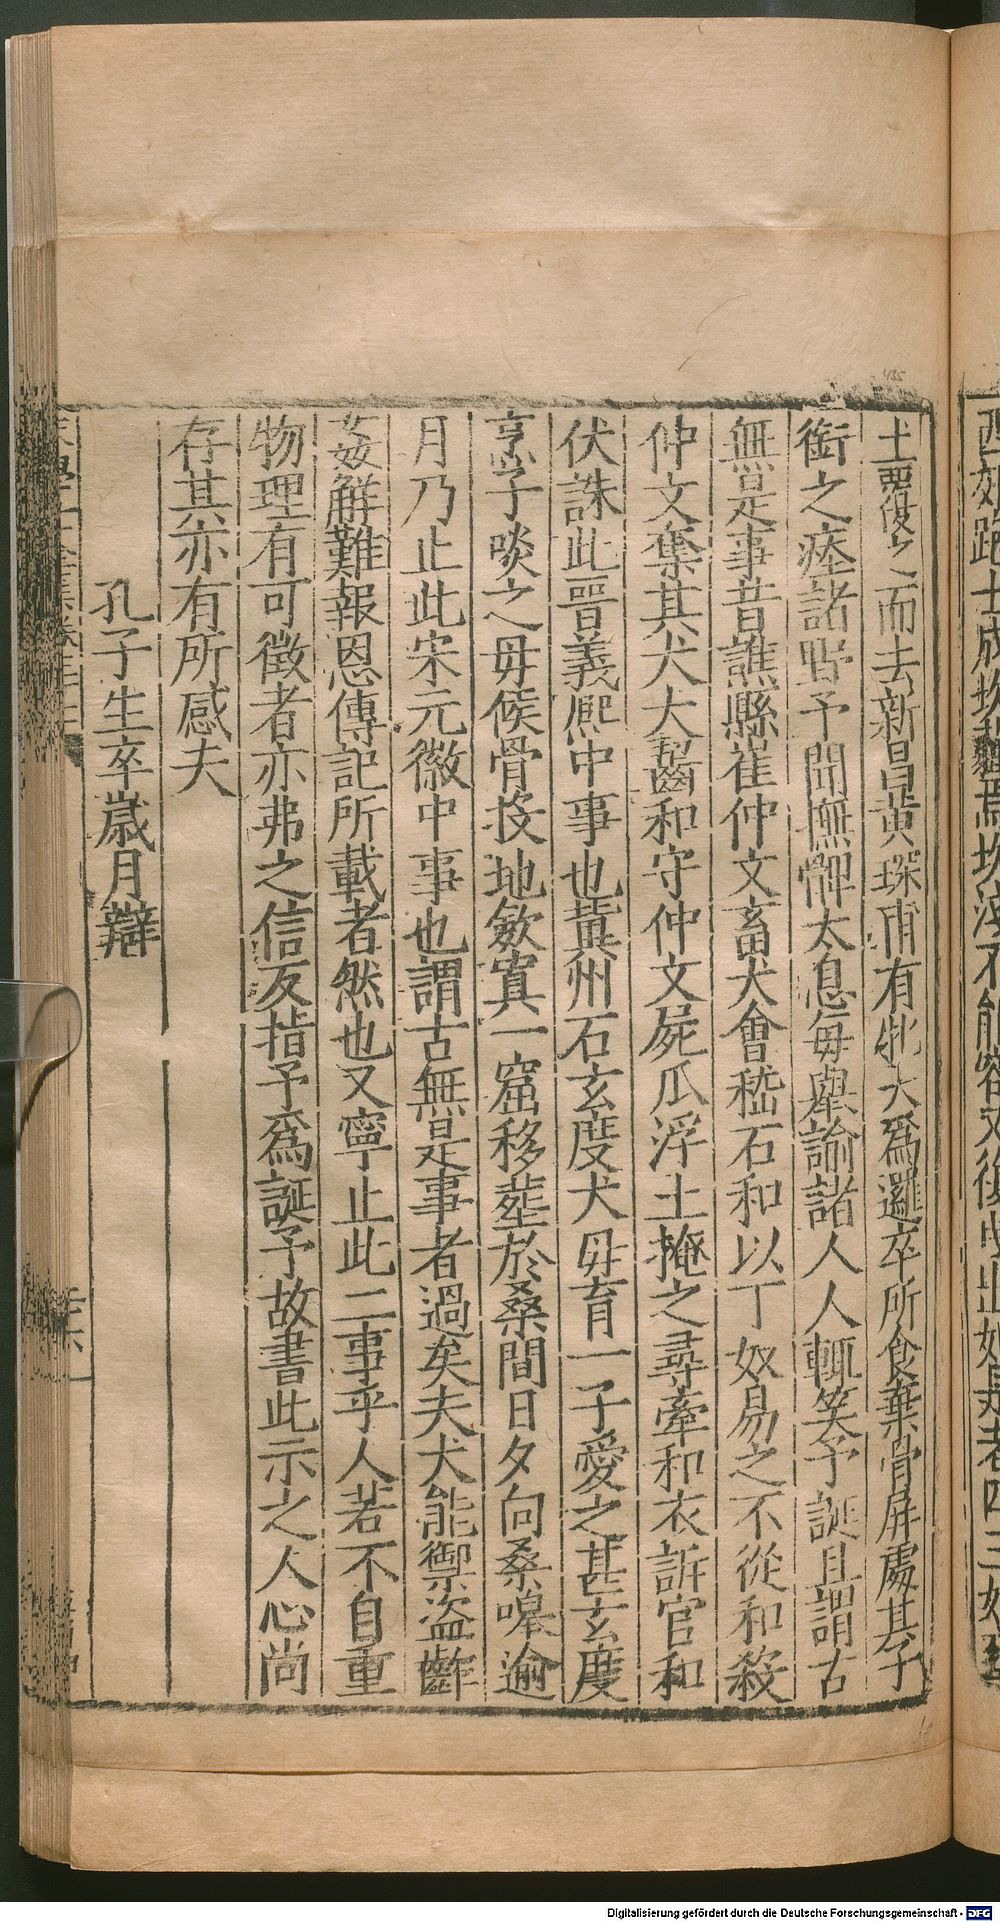 土覆之而去新昌黃琛甫有牝犬爲邏卒所食棄骨屏處其子
銜之瘞諸野予聞撫髀太息每舉諭諸人人輒笑予誕且謂古
無是事昔譙縣崔仲文畜犬會稽石和以丁奴易之不從和殺
仲文奪其犬犬齧和守仲文屍爪浮土掩之尋牽和衣訴官和
伏誅此晉義熙中事也冀州石玄度犬毋育一子愛之甚玄度
烹子啖之毋候骨投地斂寘一窟移塟於桑間日夕向桑嘷逾
月乃止此宋元徽中事也謂古無是事者過矣夫犬能禦盜齚
姦解難報恩傳記所載者然也又寧止此二事乎人若不自重
物理有可徵者亦弗之信反指予爲誕予故書此示之人心尚
存其亦有所感夫
孔子生卒歲月辯
Digitalisierung gefördert durch die Deutsche Forschungsgemeinschaft - DFG